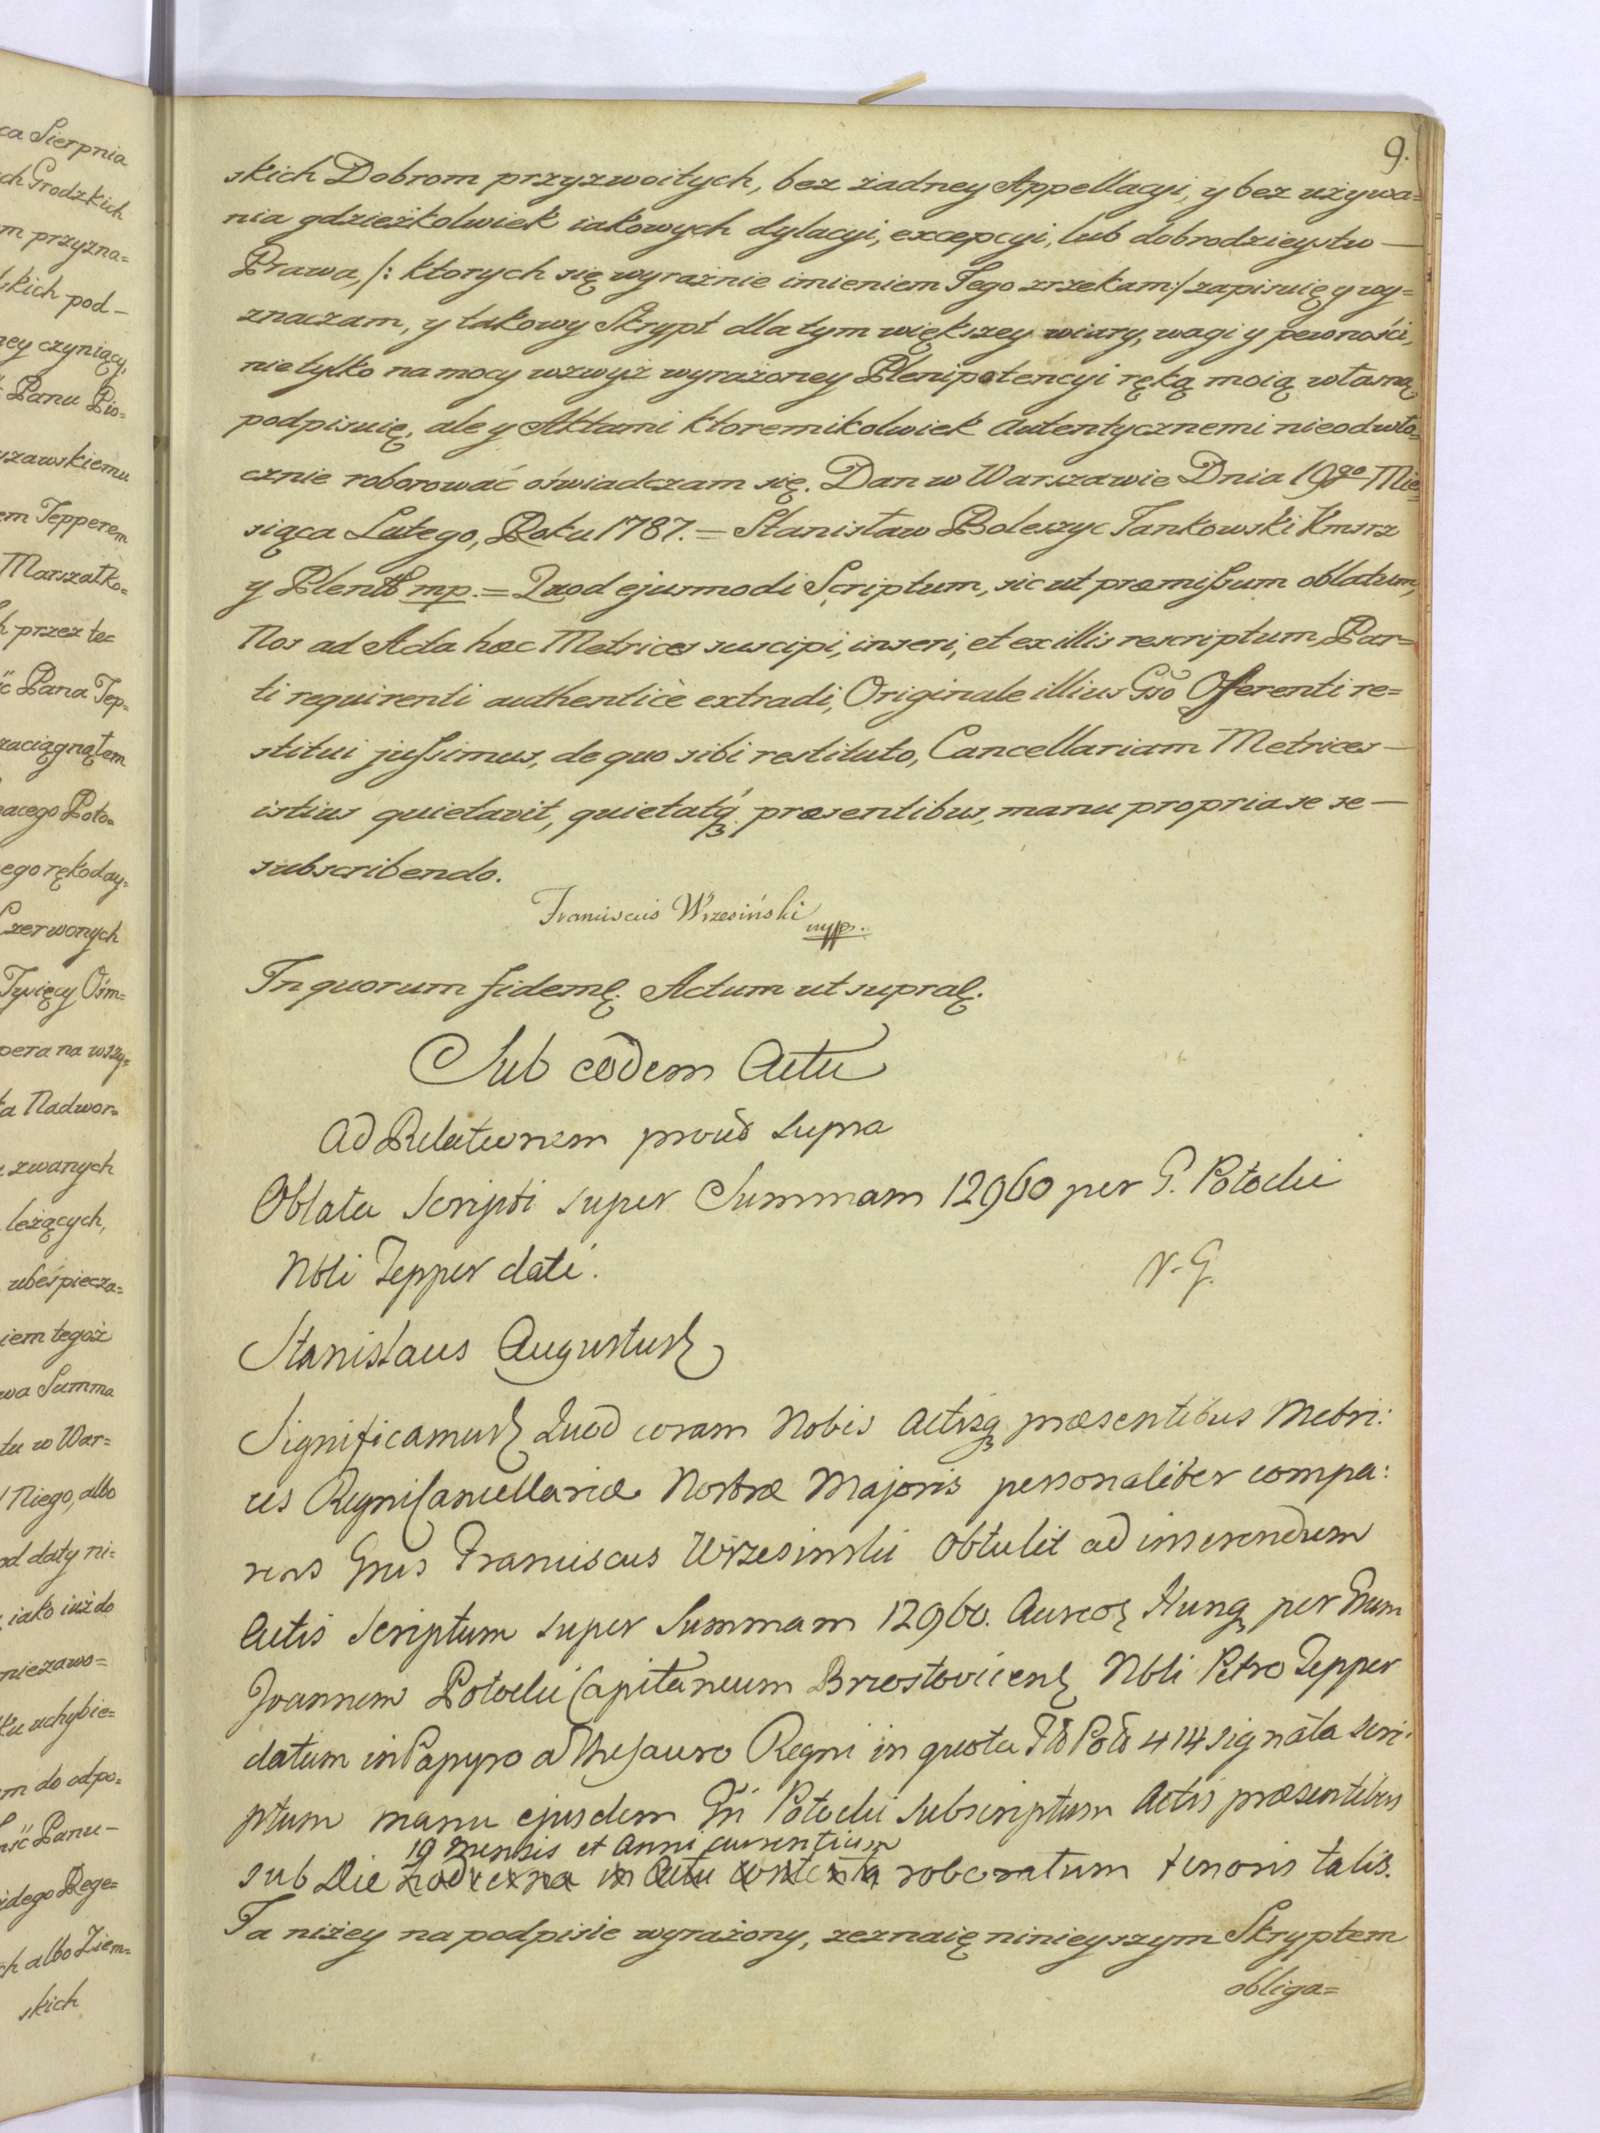 ca Sierpnia
ch Grodzkich
m przyzna=
skich pod-
ney czyniący,
Panu Pio=
szawskiemu
em Tepperem
Marszałko=
h przez te=
ić Pana Tep=
zaciągnąłem
nacego Poto=
ego rękoday=
Czerwonych
Tysięcy Ośm=
pera na wszy=
ta Nadwor=
zwanych
leżących,
ubeśpiecza=
iem tegoż
wa Summa
tu w War=
Niego, albo
od daty ni=
iako iuż do
niezawo=
ku uchybie=
m do odpo=
ść Panu-
idego Rege=
ch albo Ziem=
skich
9.
skich Dobrom przyzwoitych, bez żadney Appellacyi, y bez używa=
nia gdzieżkolwiek iakowych dylacyi, excepcyi, lub dobrodzieystw —
Prawa, /: ktorych się wyraźnie imieniem Jego zrzekam :/ zapisuię y wy=
znaczam, y takowy Skrypt dla tym większey wiary, wagi y pewności,
nie tylko na mocy wzwyż wyrażoney Plenipotencyi ręką moią własną
podpisuię, ale y Aktami ktoremikolwiek Autentycznemi nieodwło=
cznie roborować oświadczam się. Dan w Warszawie Dnia 19go Mie=
siąca Lutego, Roku 1787. = Stanisław Boleszyc Jankowski Kmsrz
y Plentt mp. = Quod ejusmodi Scriptum, sic ut præmissum oblatum,
Nos ad Acta hæc Metrices suscipi, inseri, et ex illis rescriptum, Par=
ti requirenti authenticè extradi, Originale illius Gso Offerenti re=
stitui jussimus, de quo sibi restituto, Cancellariam Metrices —
istius quietavit, quietatq́ præsentibus, manu propria se se —
subscribendo.
Franciscus Wrzesiński
mpp.
In quorum fidem. Actum ut supra.
Sub eodem Actu
Ad Relationem prout supra
Oblata Scripti super Summam 12960 per G. Potocki
Nbli Tepper dati.
N. G.
Stanislaus Augustus
Significamus Quod coram Nobis Actisq præsentibus Metri:
ces Regni Cancellariæ Nostræ Majoris personaliter compa:
rens Gnus Franciscus Wrzesinski obtulit ad inserendum
Actis Scriptum super Summam 12960. Aureor Hung per Gnum
Joannem Potocki Capitaneum Brzostovicen Nbli Petro Tepper
datum in Papyro a Thesauro Regni in quota Flo Polo 414 signata scri:
ptum manu ejusdem Gni Potocki subscriptum Actis præsentibus
19 mensis et Anni currentium
sub Die roboratum tenoris talis.
Ja niżey na podpisie wyrażony, zeznaię ninieyszym Skryptem
obliga=